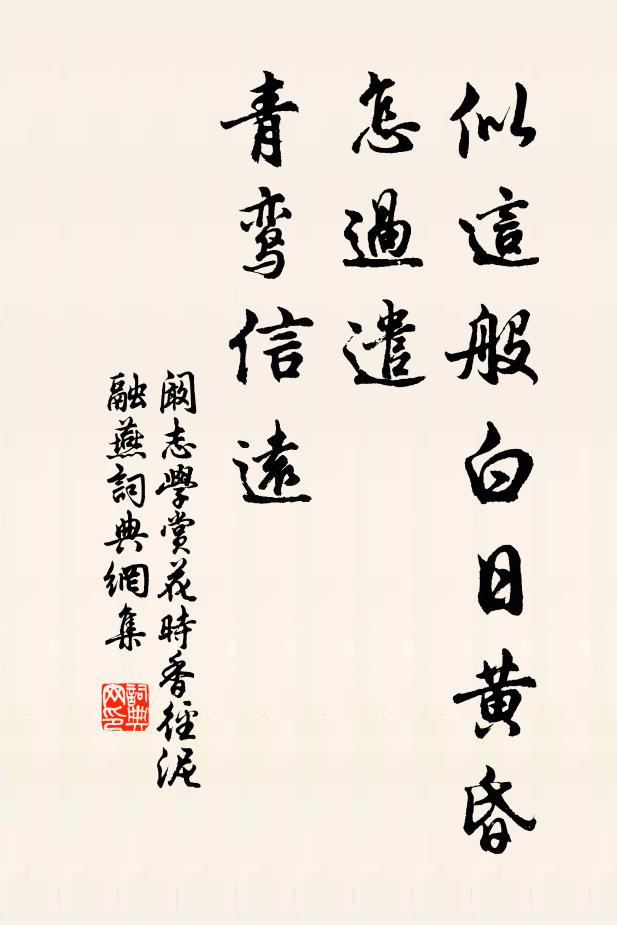 似這般白日黄昏
怎過遣
青鸾信遠
阚志學賞花時香徑泥
融燕詞典網集
詞典
网印